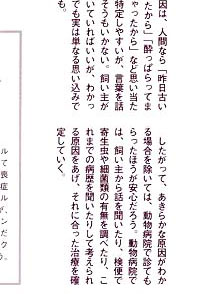 因は、人間なら「昨日古い
たから」「酔っぱらってま
ゃったから」など思い当た
特定しやすいが、言葉を話
そうもいかない。飼い主が
いていればいいが、わかっ
でも実は単なる思い込みで
も。
したがって、あきらかな原因がわか
る場合を除いては、動物病院で診ても
らったほうが安心だろう。動物病院で
は、飼い主から話を聞いたり、検便で
寄生虫や細菌類の有無を調べたり、こ
れまでの病歴を聞いたりして考えられ
る原因をあげ、それに合った治療を確
定していく。